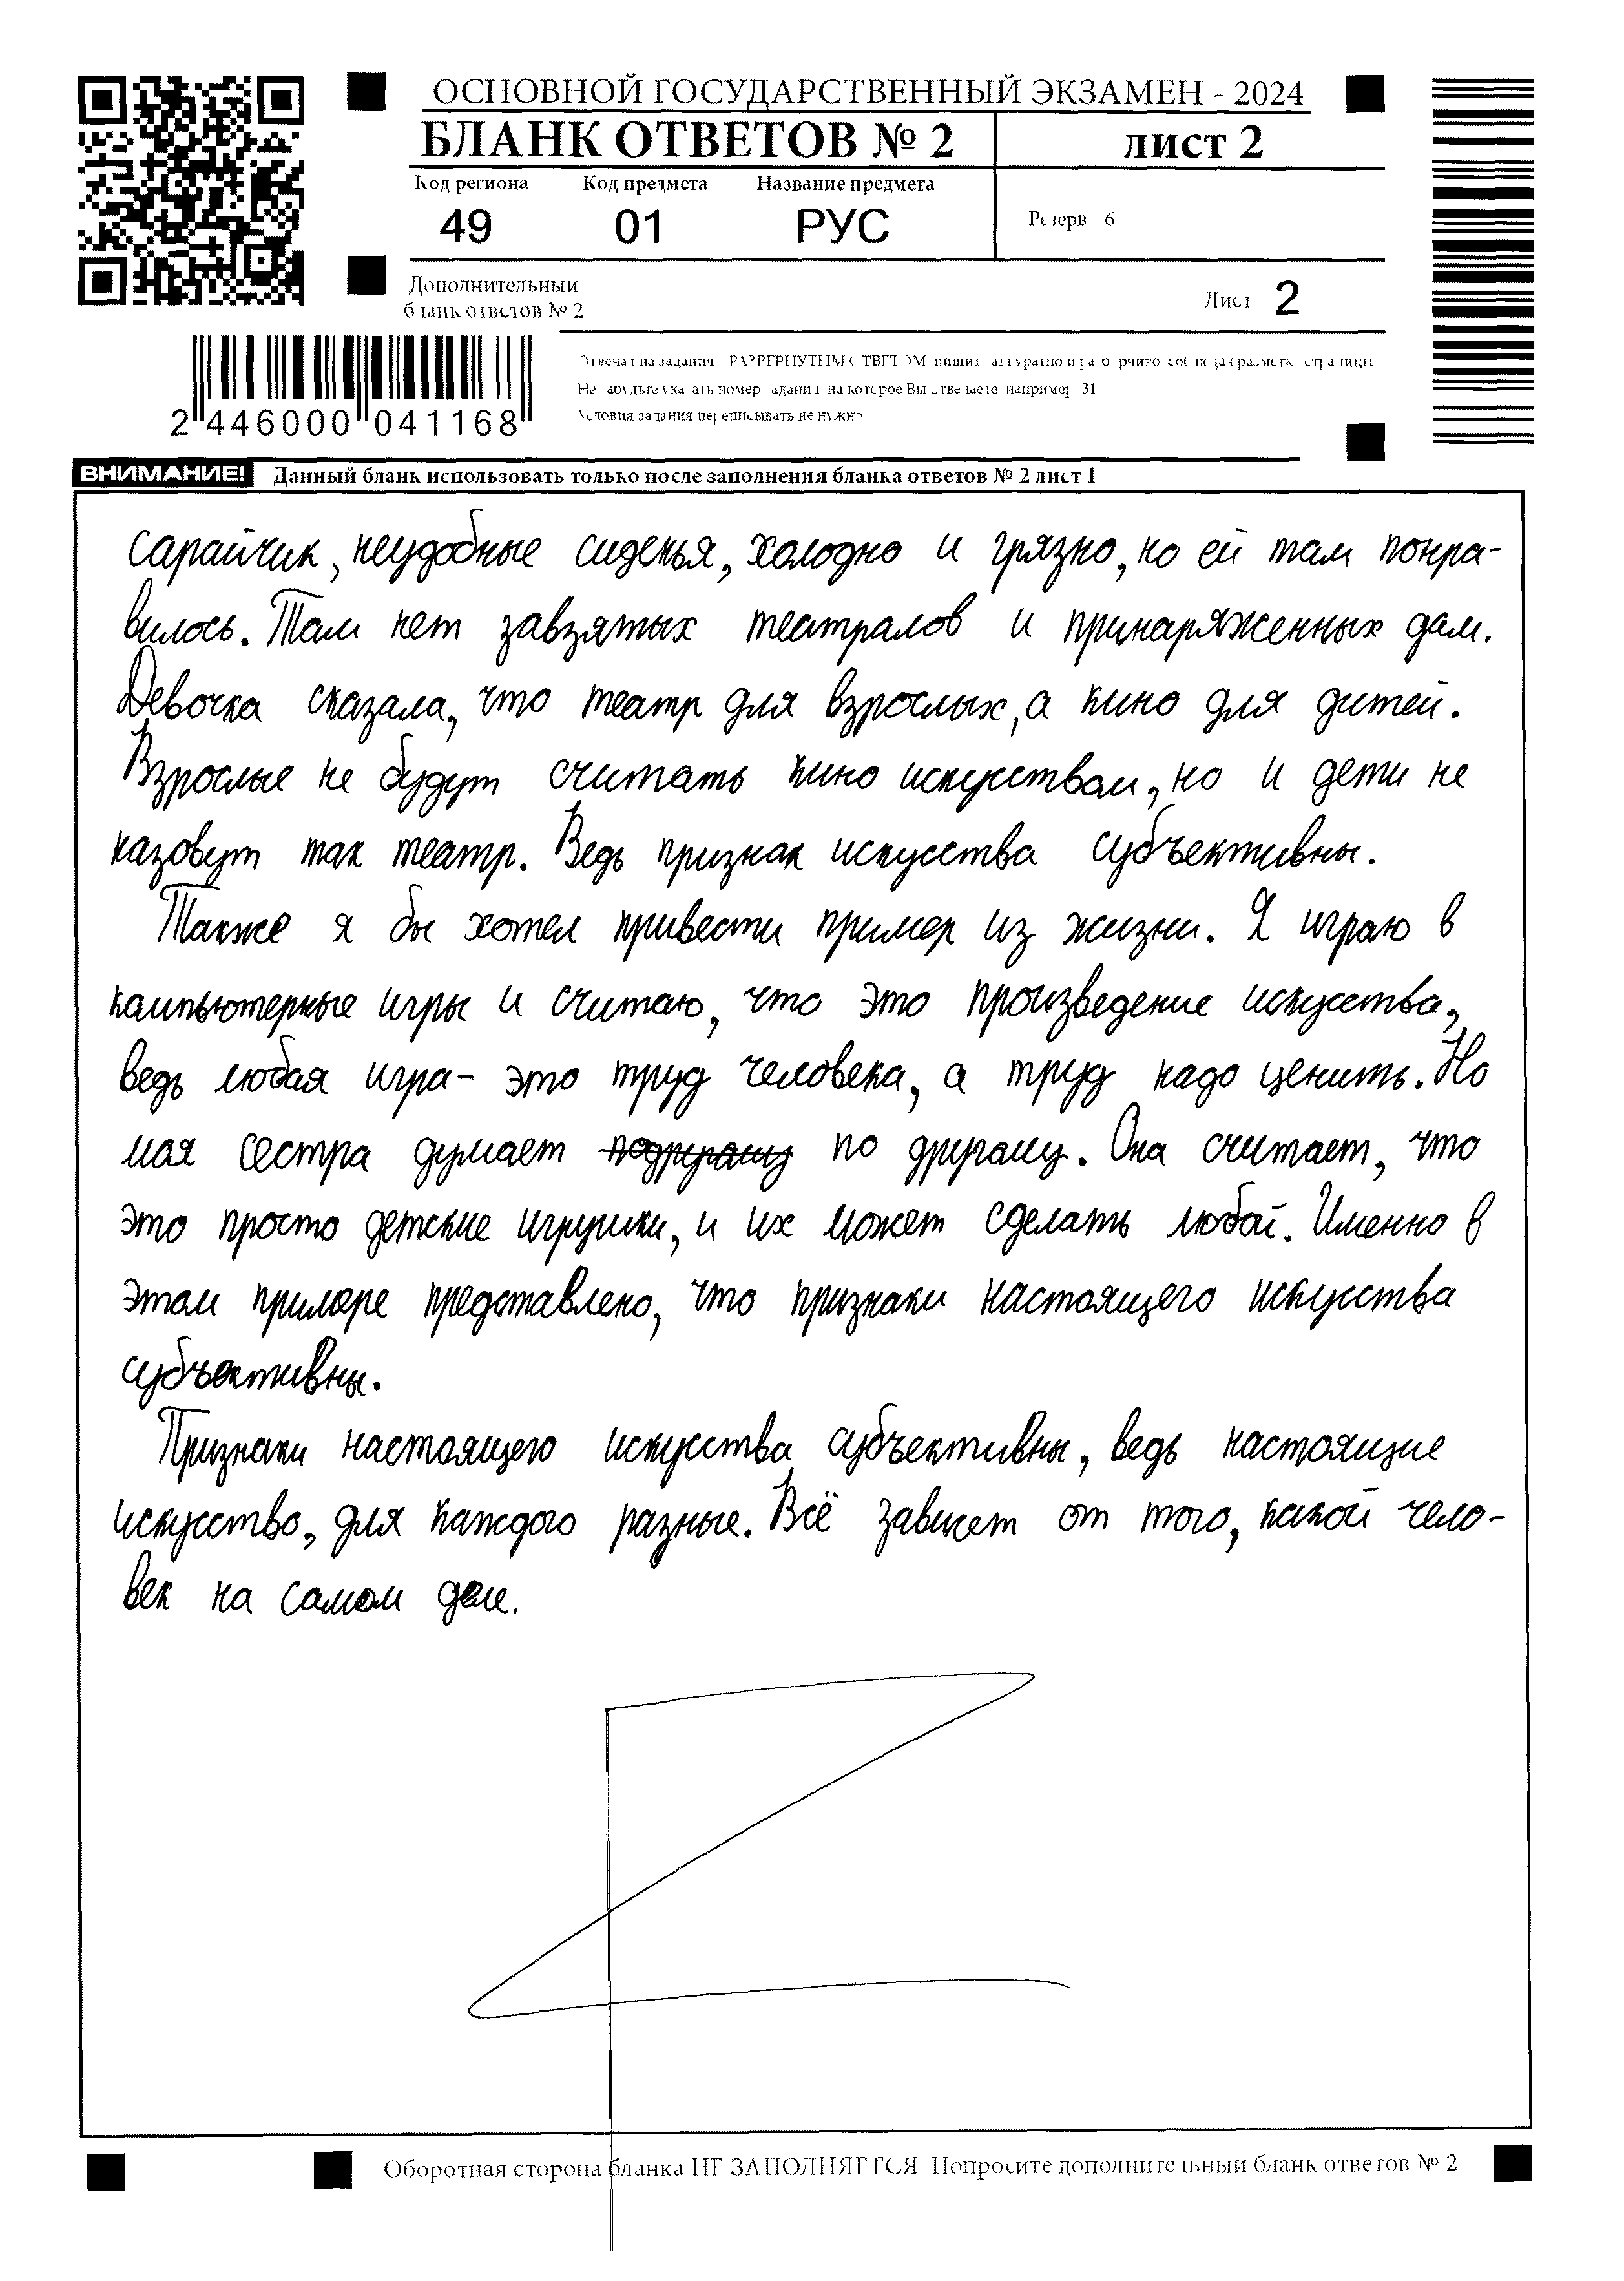 ОСНОВНОЙ ГОСУДАРСТВЕННЫЙ ЭКЗАМЕН - 2024
БЛАНК ОТВЕТОВ № 2 лист 2
Код региона Код предмета Название предмета
49 01 РУС
Резерв 6
Дополнительный
бланк ответов № 2
Лист 2
Отвечая на задания РАЗВЕРНУТЫМ ОТВЕТОМ пишите аккуратно и разборчиво соблюдая разметку страницы
Не забудьте указать номер задания на которое Вы отвечаете например 31
Условия задания переписывать не нужно
2 446000 041168
ВНИМАНИЕ! Данный бланк использовать только после заполнения бланка ответов № 2 лист 1
сарайчик, неудобные сиденья, холодно и грязно, но ей там понра-
вилось. Там нет завзятых театралов и принаряженных дам.
Девочка сказала, что театр для взрослых, а кино для дитей.
Взрослые не будут считать кино искуством, но и дети не
назовут так театр. Ведь признак искусства субъективны.
Также я бы хотел привести пример из жизни. Я играю в
компьютерные игры и считаю, что это произведение искуства,
ведь любая игра- это труд человека, а труд надо ценить. Но
моя сестра думает подругому по другому. Она считает, что
это просто детские игрушки, и их может сделать любой. Именно в
этом примере представлено, что признаки настоящего искусства
субъективны.
Признаки настоящего искусства субъективны, ведь настоящие
искусство, для каждого разные. Всё зависет от того, какой чело-
век на самом деле.
Оборотная сторона бланка НЕ ЗАПОЛНЯЕТСЯ Попросите дополнительный бланк ответов № 2